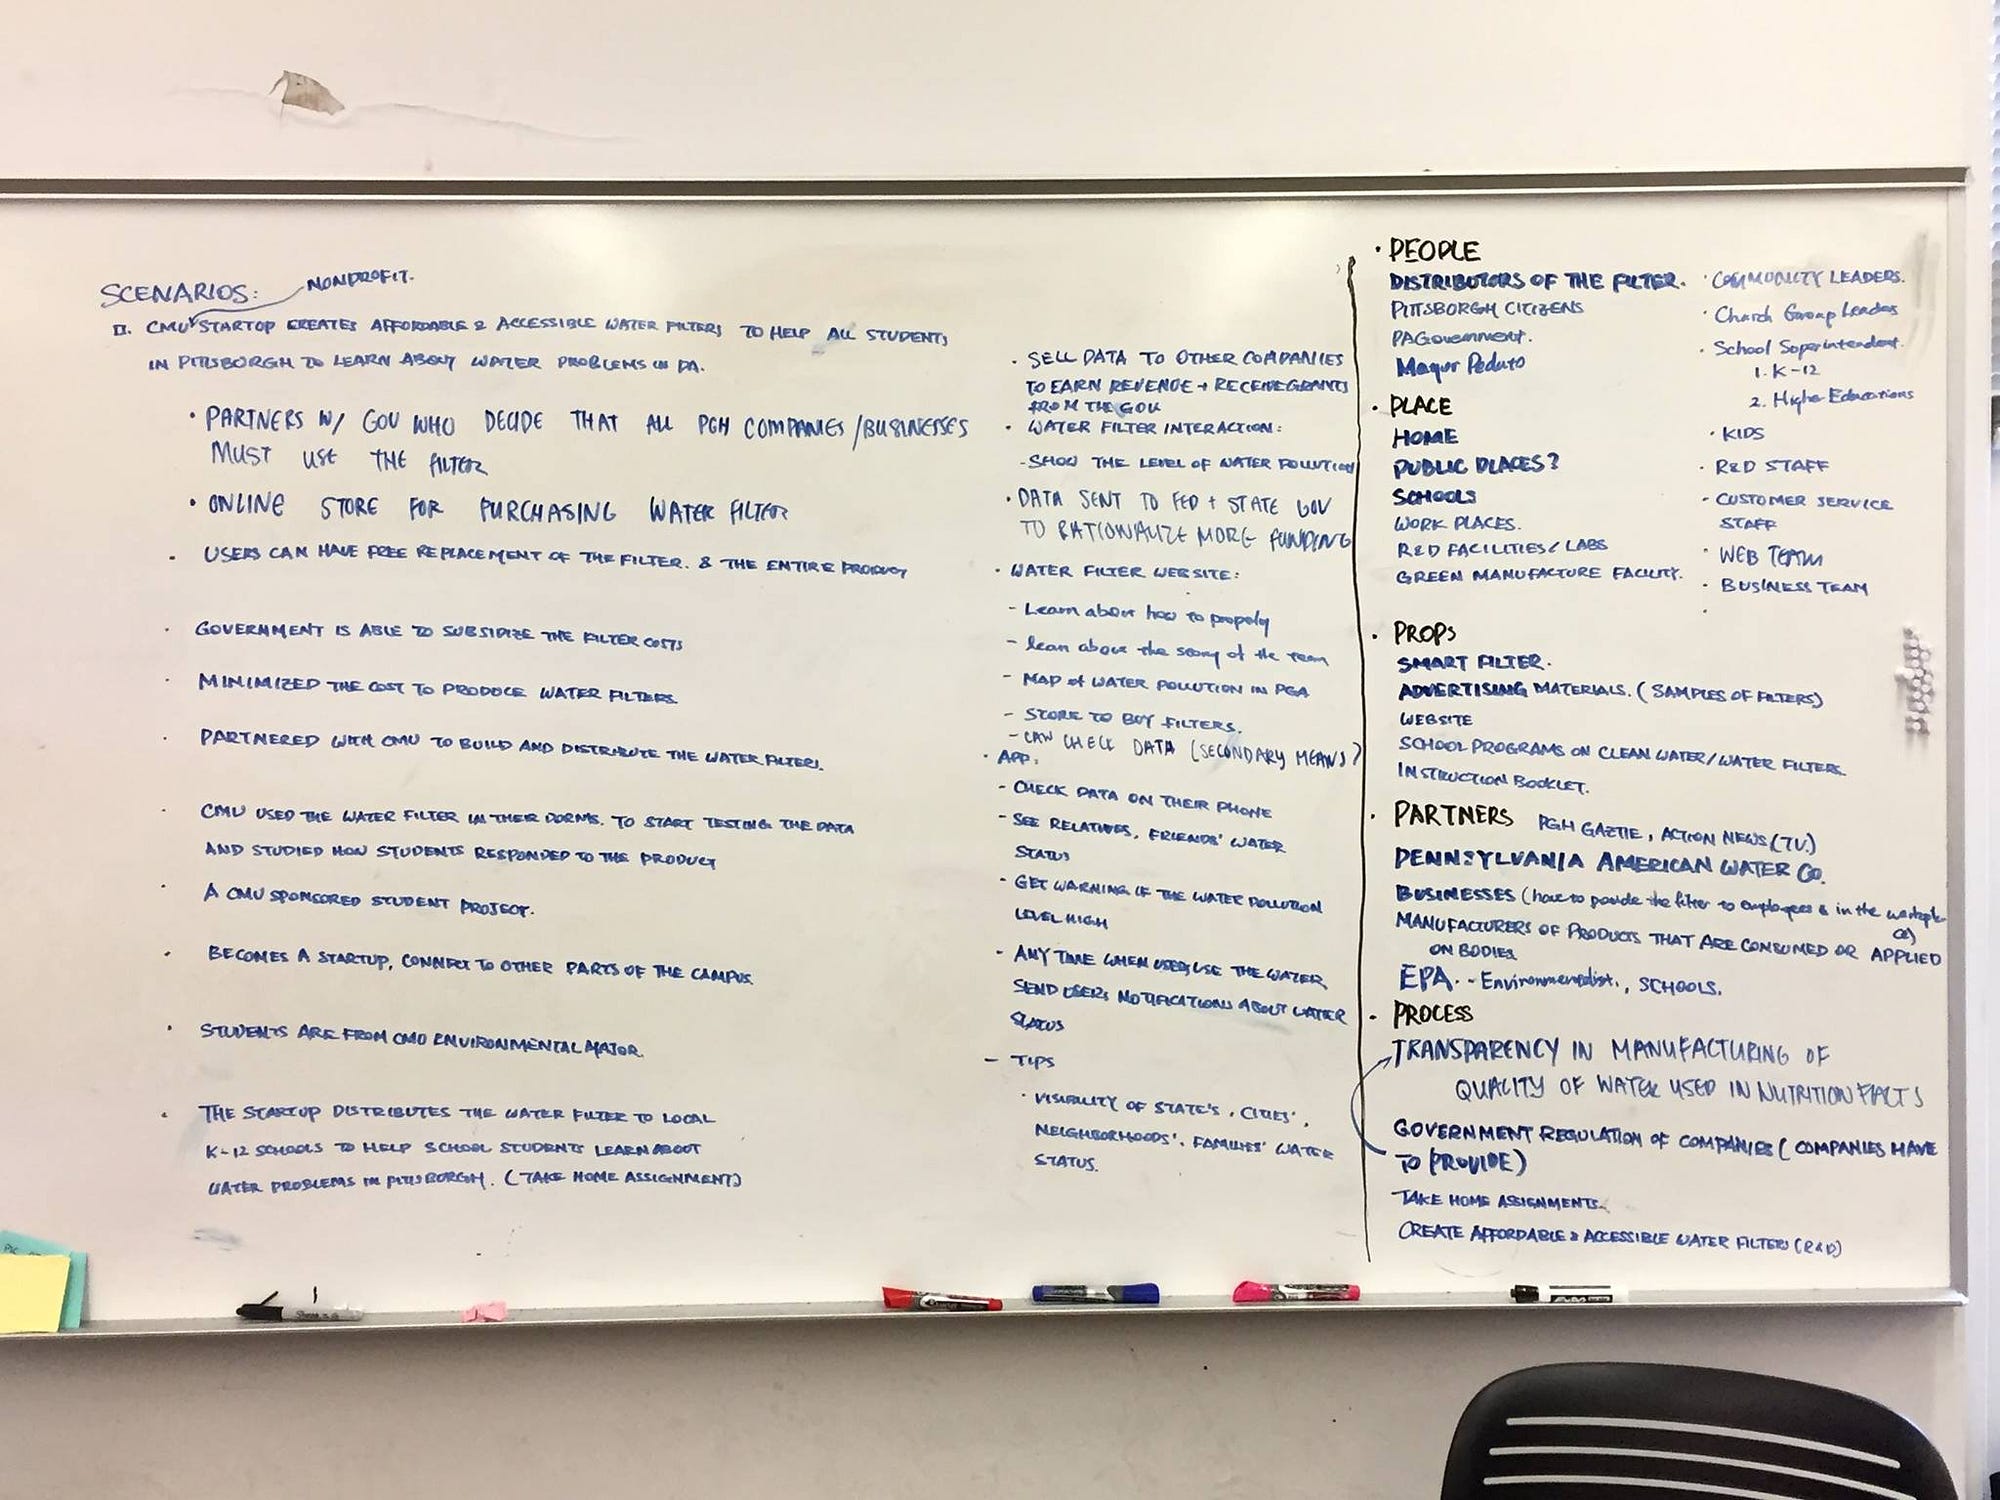 SCENARIOS:
NONPROFIT.
II. CMU STARTUP CREATES AFFORDABLE & ACCESSIBLE WATER FILTERS TO HELP ALL STUDENTS
IN PITTSBORGH TO LEARN ABOUT WATER PROBLEMS IN PA.
• PARTNERS W/ GOV WHO DECIDE THAT ALL PGH COMPANIES/BUSINESSES
MUST USE THE FILTER
• ONLINE STORE FOR PURCHASING WATER FILTER
• USERS CAN HAVE FREE REPLACEMENT OF THE FILTER. & THE ENTIRE PRODUCT
• GOVERNMENT IS ABLE TO SUBSIDIZE THE FILTER COSTS
• MINIMIZED THE COST TO PRODUCE WATER FILTERS.
• PARTNERED WITH CMU TO BUILD AND DISTRIBUTE THE WATER FILTERS.
• CMU USED THE WATER FILTER IN THEIR DORMS. TO START TESTING THE DATA
AND STUDIED HOW STUDENTS RESPONDED TO THE PRODUCT
• A CMU SPONSORED STUDENT PROJECT.
• BECOMES A STARTUP, CONNECT TO OTHER PARTS OF THE CAMPUS.
• STUDENTS ARE FROM CMU ENVIRONMENTAL MAJOR.
• THE STARTUP DISTRIBUTES THE WATER FILTER TO LOCAL
K-12 SCHOOLS TO HELP SCHOOL STUDENTS LEARN ABOUT
WATER PROBLEMS IN PITTSBORGH. (TAKE HOME ASSIGNMENT)
• SELL DATA TO OTHER COMPANIES
TO EARN REVENUE + RECEIVE GRANTS
FROM THE GOV
• WATER FILTER INTERACTION:
- SHOW THE LEVEL OF WATER POLLUTION
• DATA SENT TO FED + STATE GOV
TO RATIONALIZE MORE FUNDING
• WATER FILTER WEBSITE:
- Learn about how to properly
- lean about the story of the team
- MAP of WATER POLLUTION IN PGA
- STORE TO BUY FILTERS.
- CAN CHECK DATA (SECONDARY MEANS)
• APP:
- CHECK DATA ON THEIR PHONE
- SEE RELATIVES, FRIENDS' WATER
STATUS
- GET WARNING IF THE WATER POLLUTION
LEVEL HIGH
- ANY TIME WHEN USERS USE THE WATER,
SEND USERS NOTIFICATIONS ABOUT WATER
STATUS
- TIPS
• VISIBILITY OF STATE'S, CITIES',
NEIGHBORHOODS', FAMILIES' WATER
STATUS.
• PEOPLE
DISTRIBUTORS OF THE FILTER.
PITTSBORGH CITIZENS
PAGovernment.
Mayor Peduto
• COMMUNITY LEADERS.
• Church Group Leaders
• School Soperintendent.
1. K-12
2. Higher Educations
• KIDS
• R&D STAFF
- CUSTOMER SERVICE
STAFF
• WEB TEAM
• BUSINESS TEAM
•
• PLACE
HOME
PUBLIC PLACES?
SCHOOLS
WORK PLACES.
R&D FACILITIES/LABS
GREEN MANUFACTURE FACILITY.
• PROPS
SMART FILTER.
ADVERTISING MATERIALS. (SAMPLES OF FILTERS)
WEBSITE
SCHOOL PROGRAMS ON CLEAN WATER/WATER FILTERS.
INSTRUCTION BOOKLET.
• PARTNERS PGH GAZTIE, ACTION NEWS (TV.)
PENNSYLVANIA AMERICAN WATER CO.
BUSINESSES (have to provide the filter to employees & in the workplace)
MANUFACTURERS OF PRODUCTS THAT ARE CONSUMED OR APPLIED
ON BODIES
EPA. - Environmentalist., SCHOOLS.
• PROCESS
TRANSPARENCY IN MANUFACTURING OF
QUALITY OF WATER USED IN NUTRITION FACTS
GOVERNMENT REGULATION OF COMPANIES (COMPANIES HAVE
TO PROVIDE)
TAKE HOME ASSIGNMENTS.
CREATE AFFORDABLE & ACCESSIBLE WATER FILTERS (R&D)